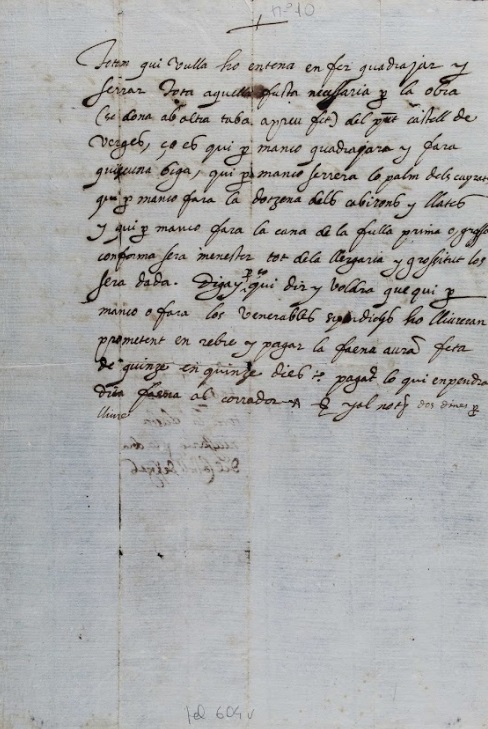 nº 10
Item qui vulla ho entena en fer quadrajar y
serrar tota aquella fusta necessaria p la obra
(se dona ab altra taba a preu fet) del pnt castell de
Verges, ço es qui p manco quadrajara y fara
quiscuna biga, qui p manco serrera lo palm dels
qui p manco fara la dotzena dells cabirons y llates
y qui p manco fara la cana de la fulla prima o grossa
conforma sera menester tot dela llergaria y grossitut los
sera dada. Digay p ço qui dir y voldra que qui p
manco o fara los venerables sindichs ho lliuraran
prometent en rebre y pagar la faena aura feta
de quinze en quinze dies pagat lo qui enpendra
dita faena al corrador y al not dos dines p
lliura
fol 604 v